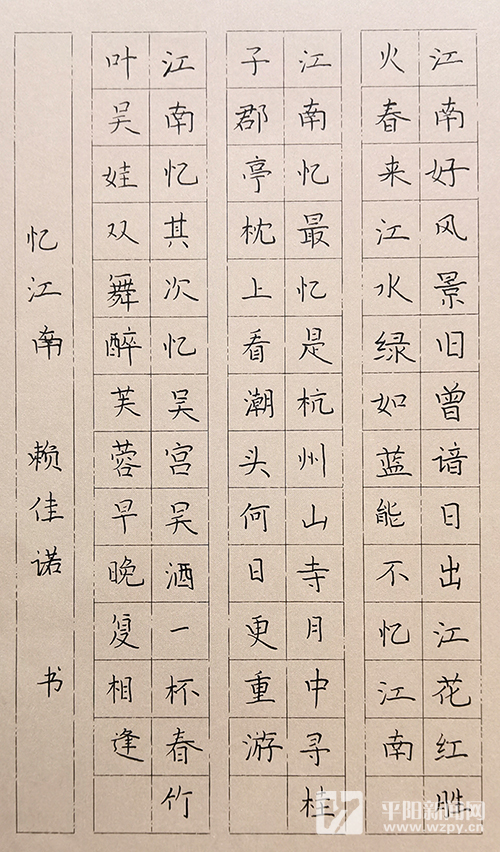 江南好风景旧曾谙日出江花红胜
火春来江水绿如蓝能不忆江南
江南忆最忆是杭州山寺月中寻桂
子郡亭枕上看潮头何日更重游
江南忆其次忆吴宫吴酒一杯春竹
叶吴娃双舞醉芙蓉早晚复相逢
忆江南 赖佳诺 书
平阳新闻网
www.wzpy.com